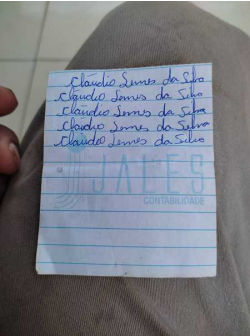 Cláudio Lemes da Silva
Claudio Lemes da Silva
Claudio Lemes da Silva
Claudio Lemes da Silva
Claudio Lemes da Silva
JALES
CONTABILIDADE